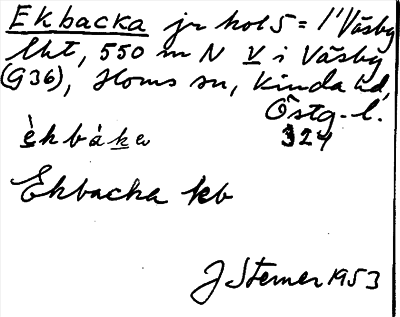 Ekbacka jr kol 5 = l'Väsby
lht, 550 m N V i Väsby
(G36), Horns sn, Kinda hd,
Östg.l.
èkbáka 324
Ekbacka kb
J Sterner 1953